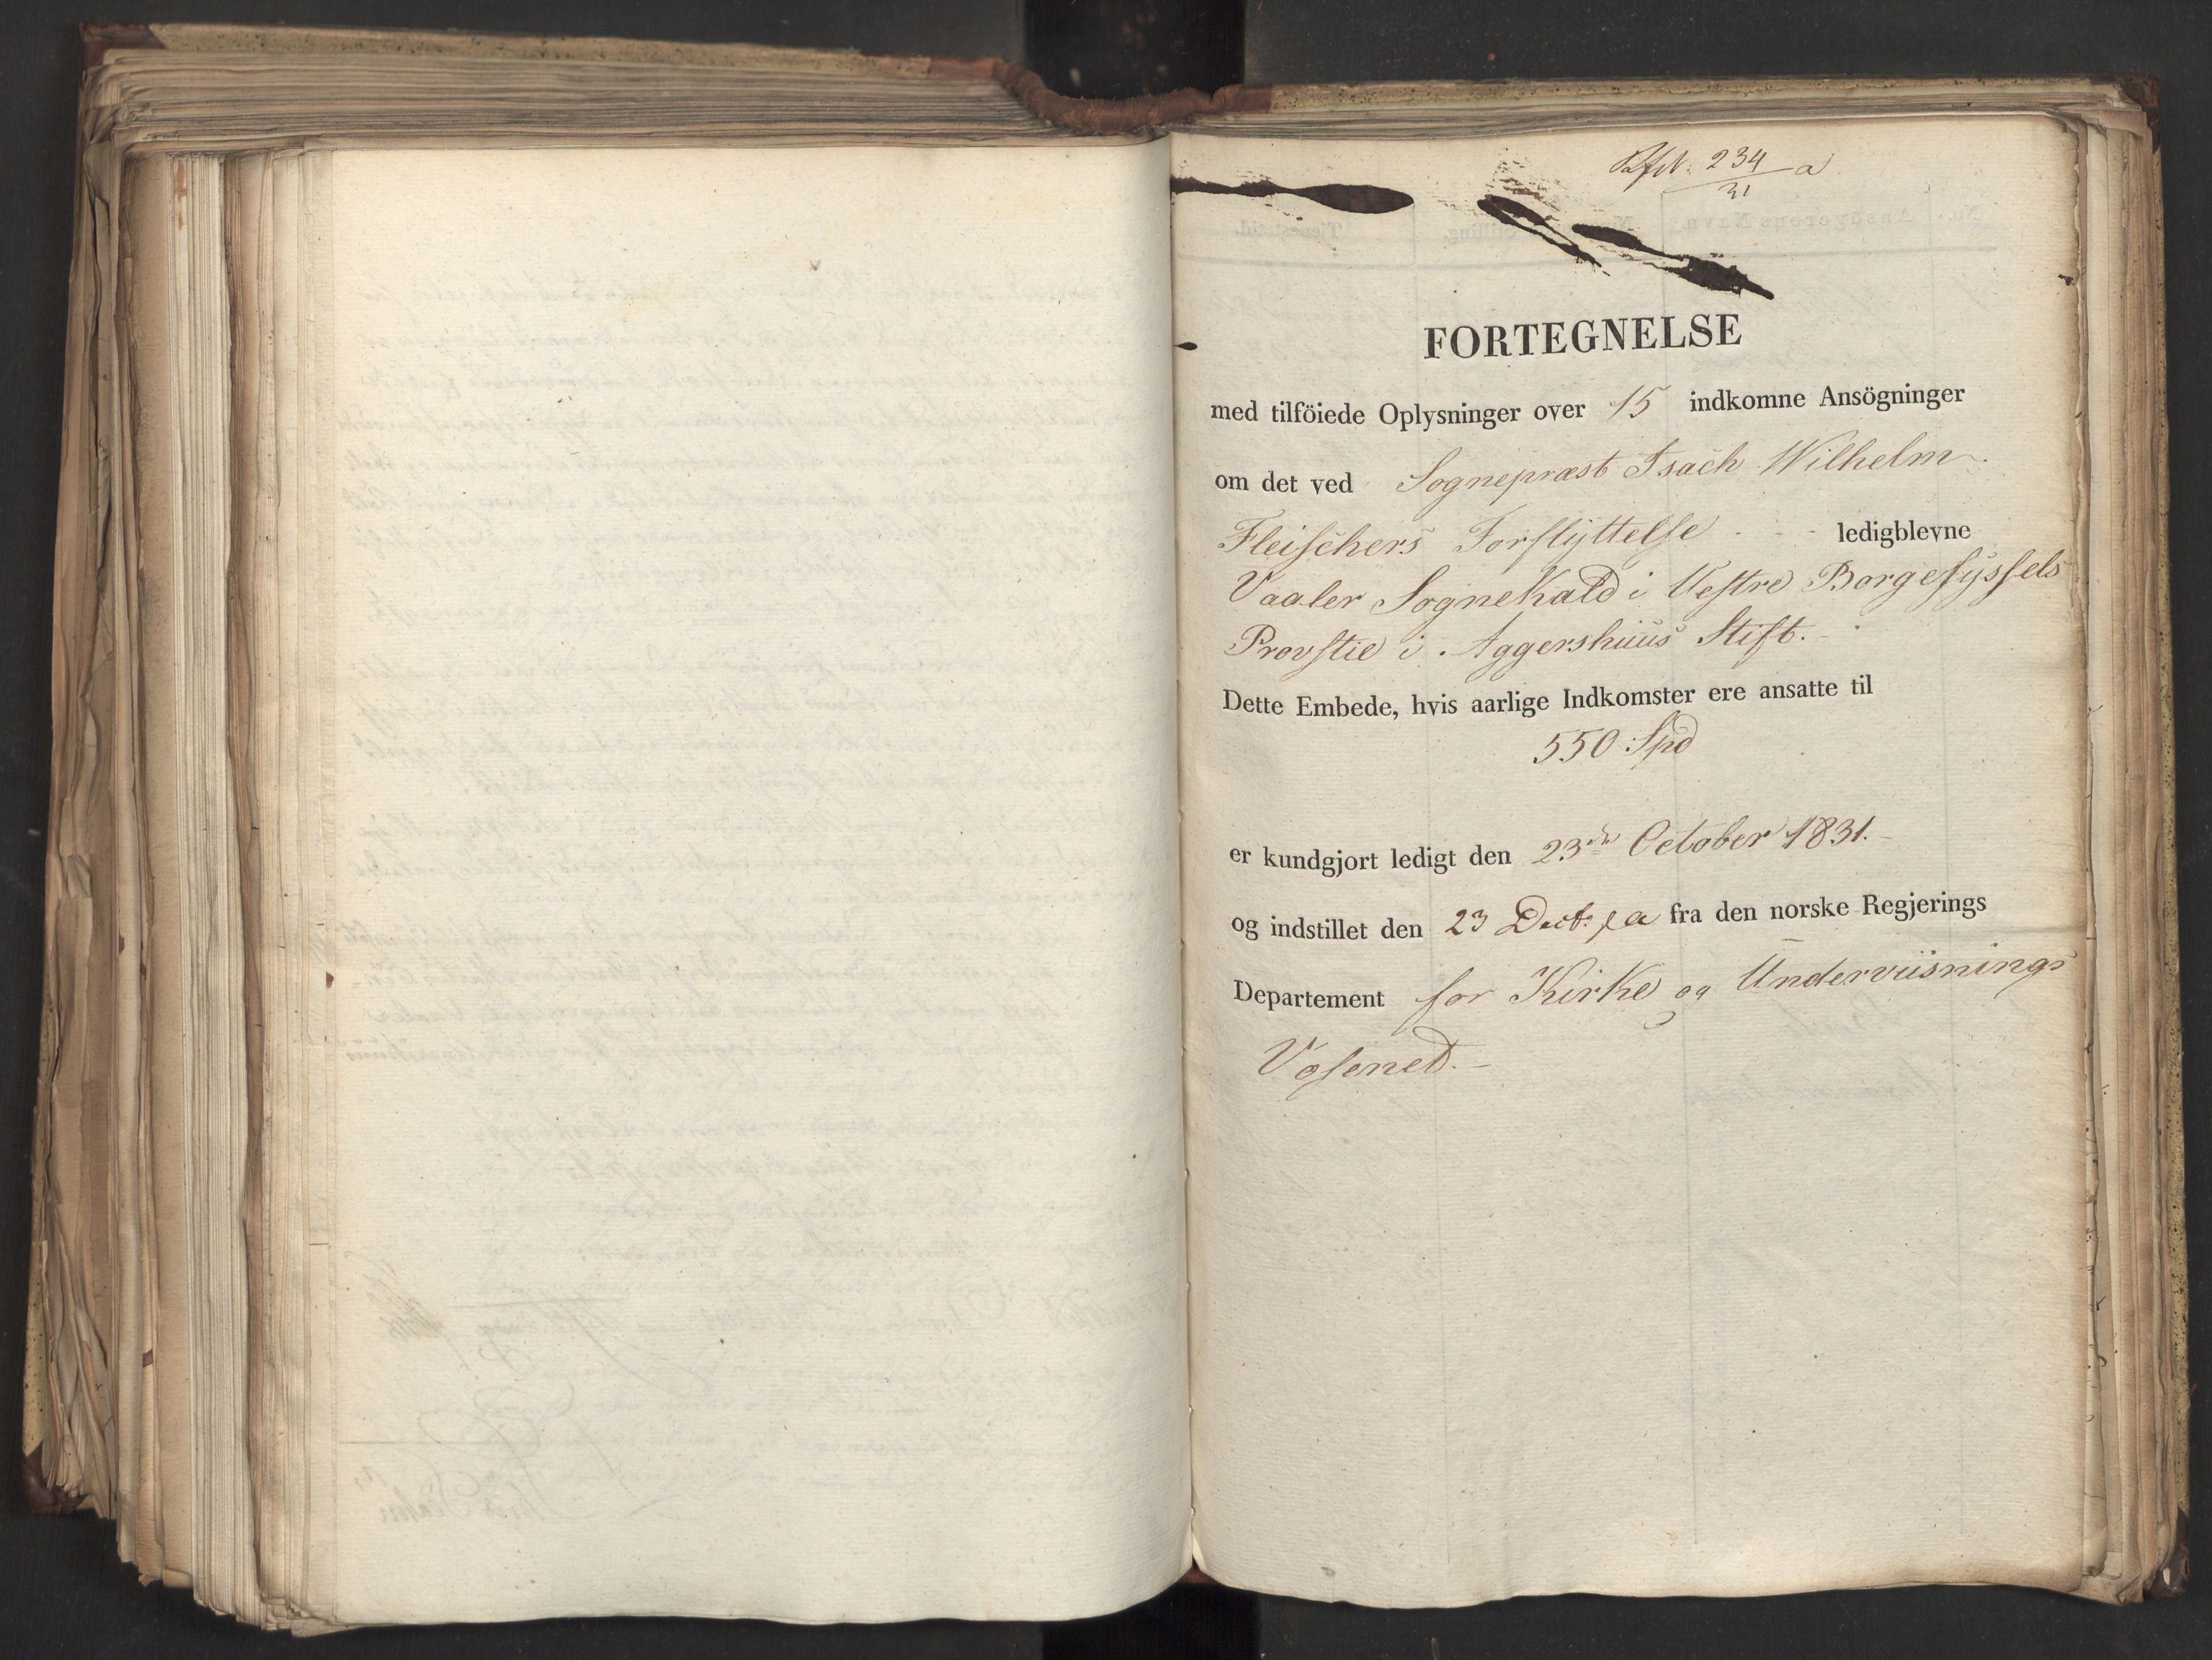 234/31 a
FORTEGNELSE
med tilföiede Oplysninger over 15 indkomne Ansögninger
om det ved Sognepræst Isach Wilhelm
Fleischers Forflyttelse - - ledigblevne
Vaaler Sognekald i Vestre Borgesyssels
Provstie i Aggershuus Stift.
Dette Embede, hvis aarlige Indkomster ere ansatte til
550 Spd
er kundgjort ledigt den 23de October 1831.
og indstillet den 23 Decbr. s. a fra den norske Regjerings
Departement for Kirke og Underviisnings
Væsenet.